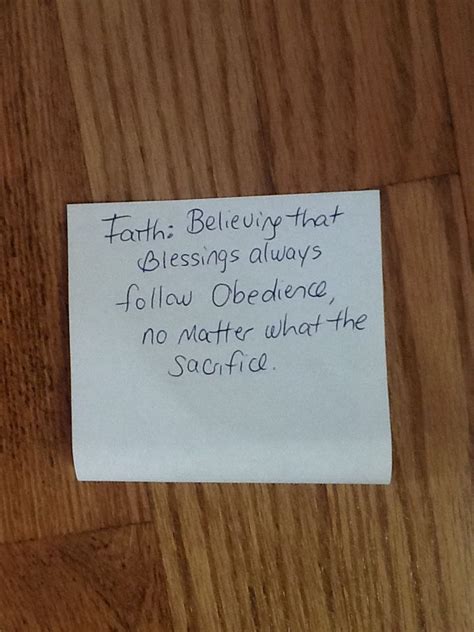 Faith: Believing that
Blessings always
follow Obedience,
no matter what the
sacrifice.